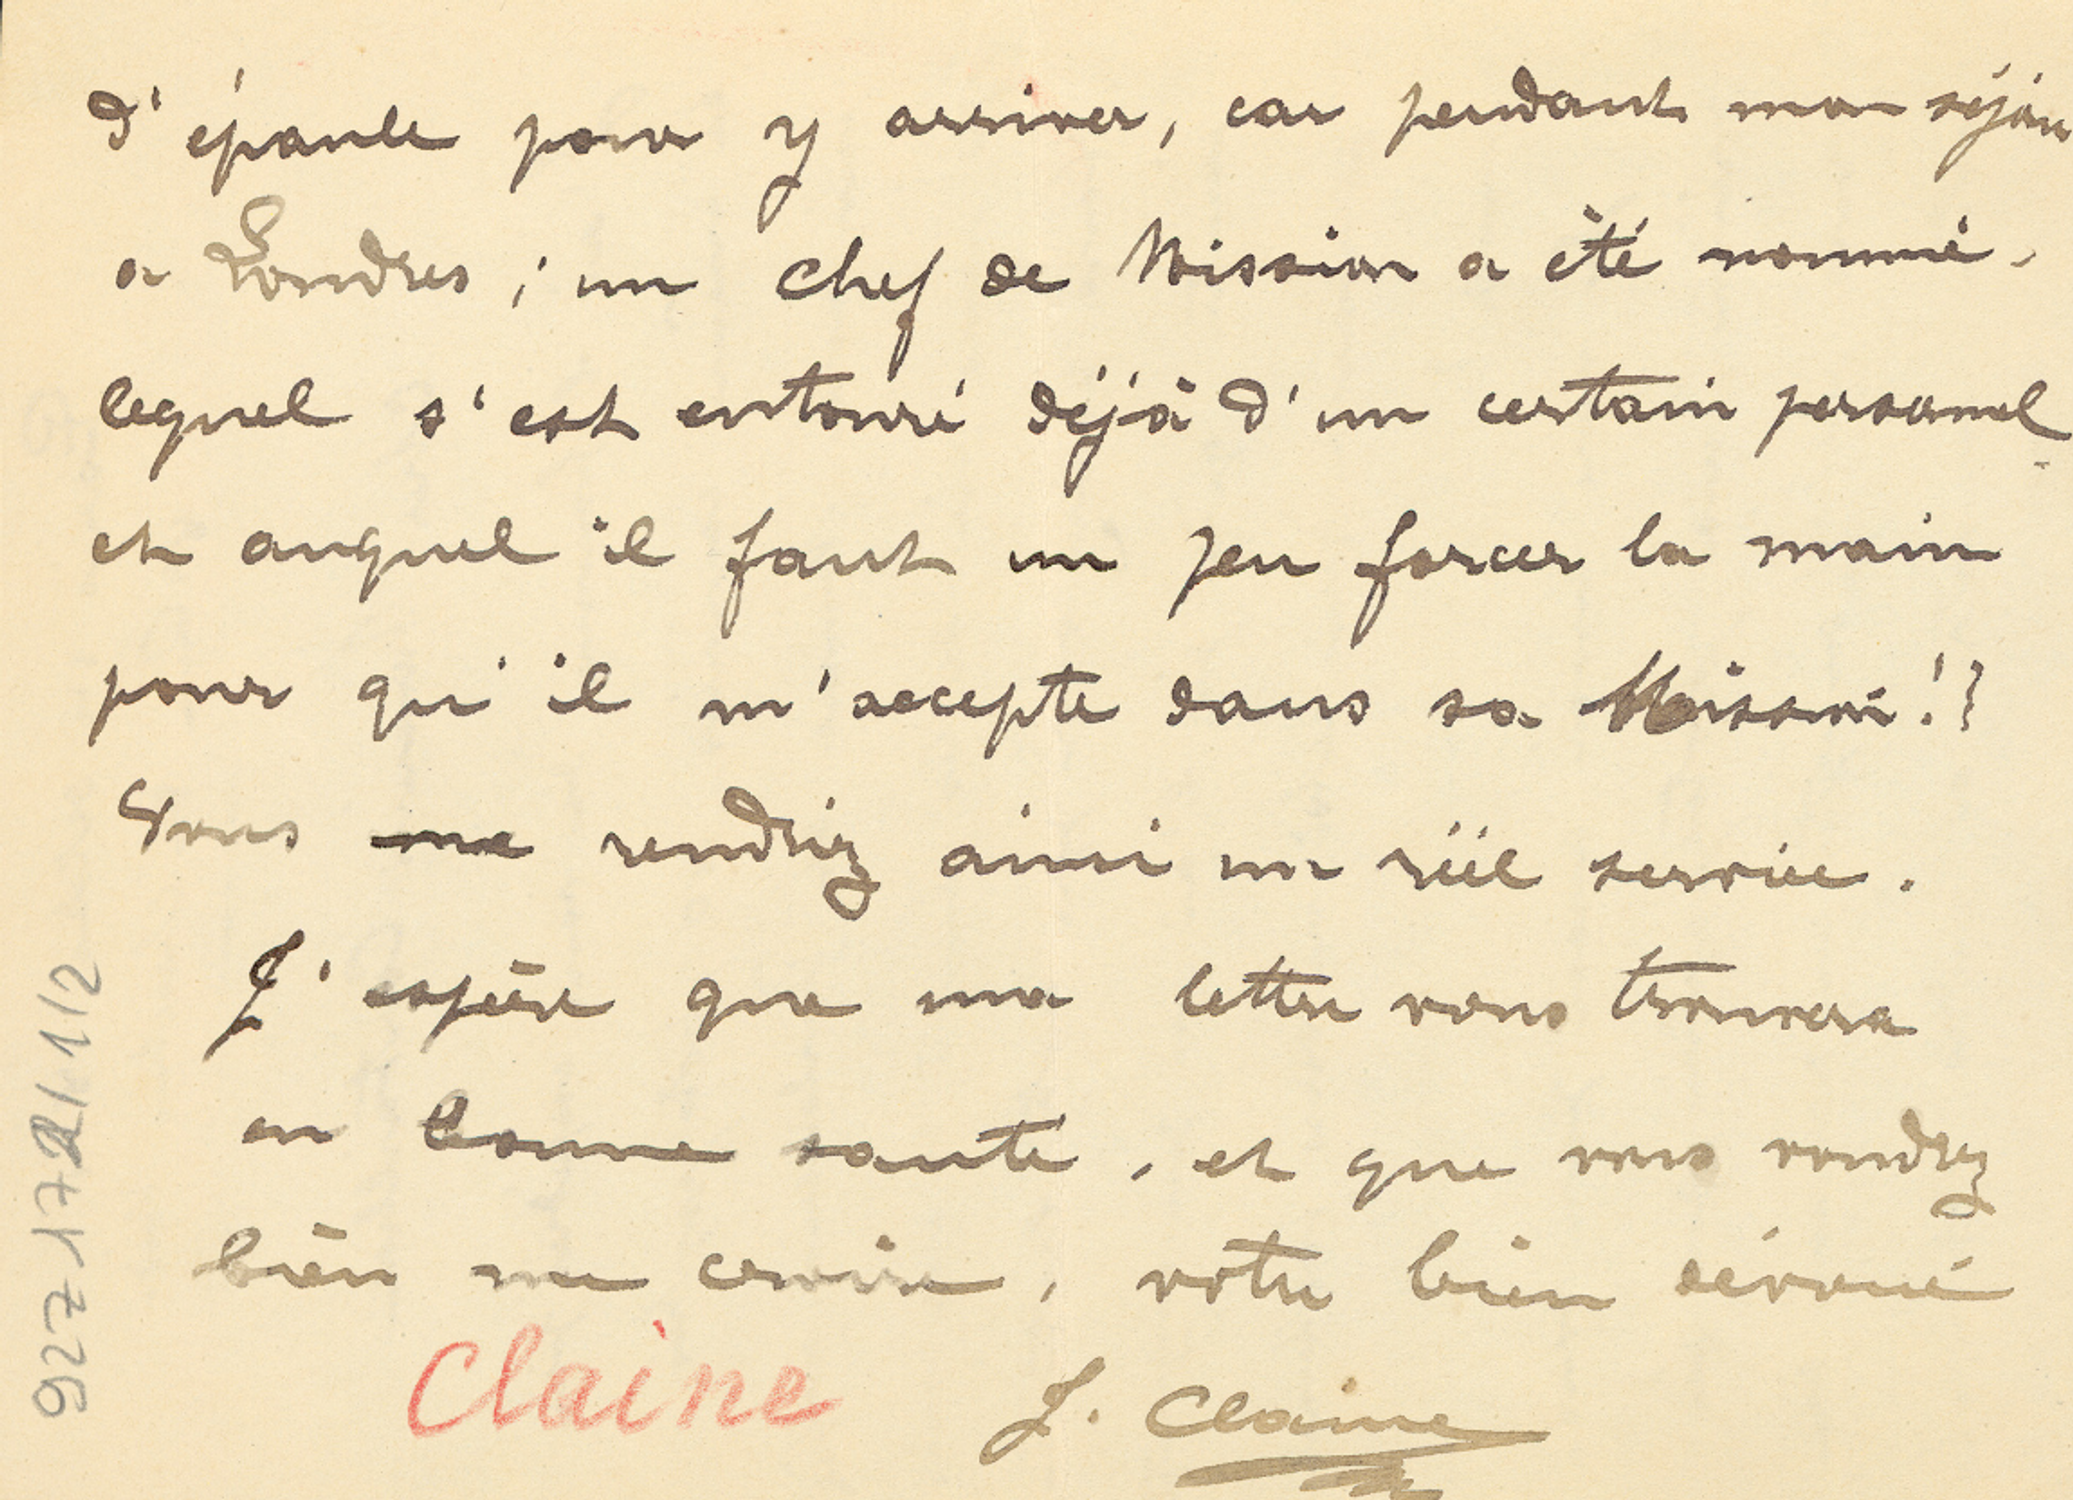 d'épaule pour y arriver, car pendant mon séjour
a Londres ; un chef de Mission a été nommé,
lequel s'est entouré déjà d'un certain personnel
et auquel il faut un peu forcer la main
pour qu'il m'accepte dans sa Mission !?
Vous me rendriez ainsi un réel service.
J'espère que ma lettre vous trouvera
en bonne santé, et que vous voudrez
bien me croire, votre bien dévoué
Claine J. Claine
927 172/1/2